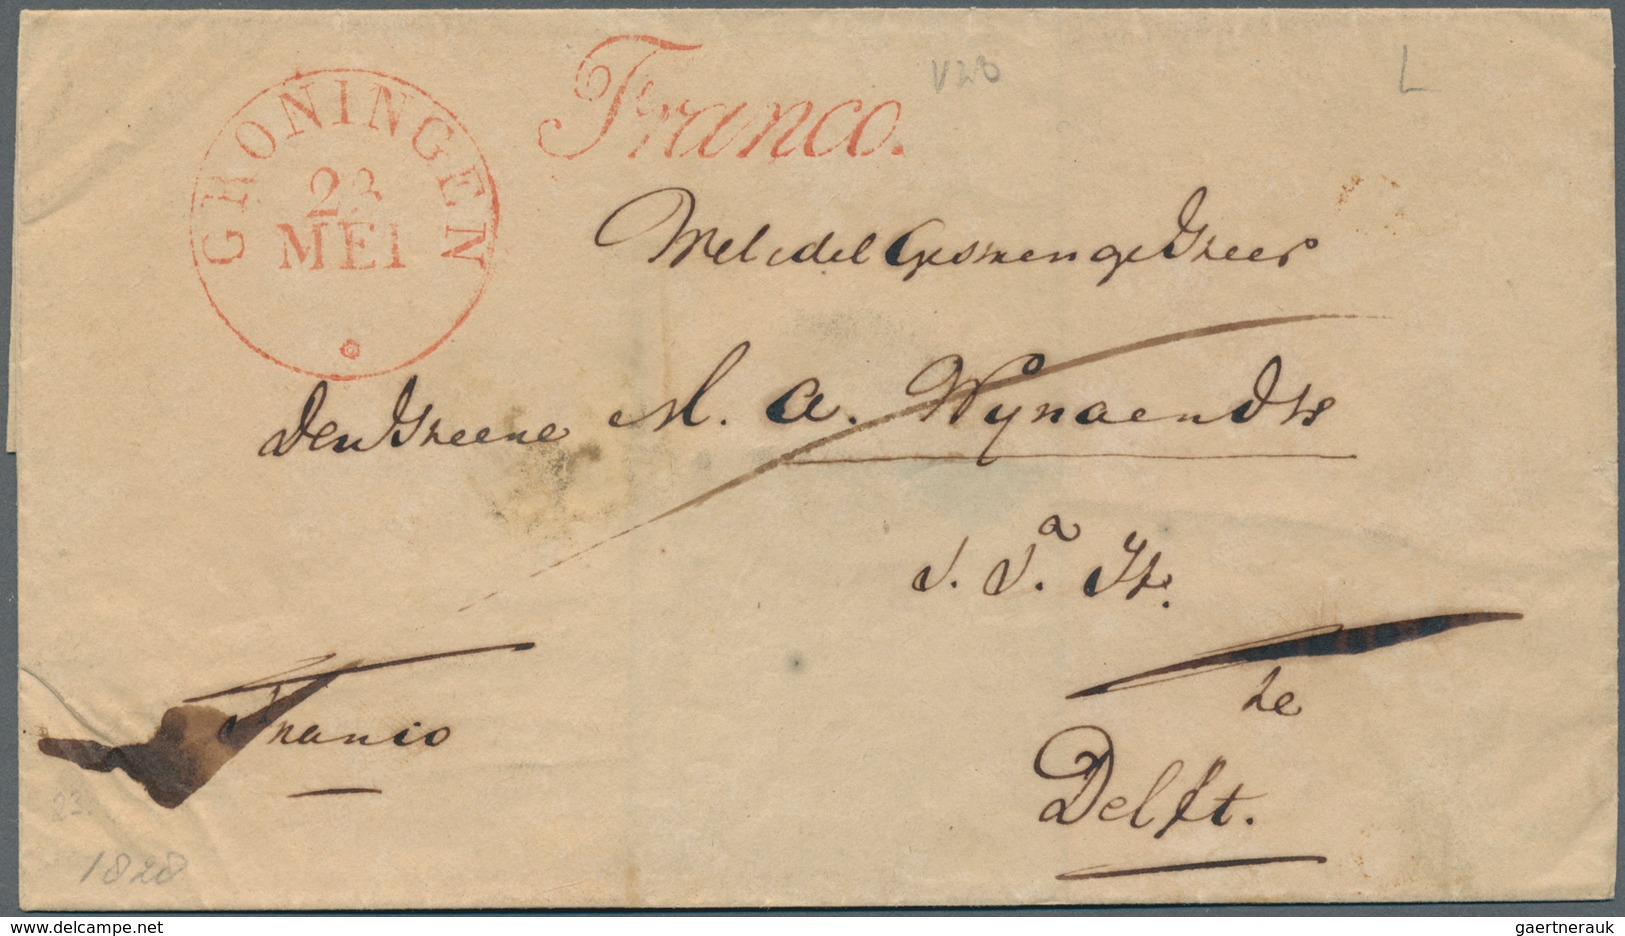 GRONINGEN
23
MEI
Franco.
V28
L
Wel edel Gestrenge Heer
den Heere M. A. Wynaendts
Franco
te
Delft.
23.
1828
www.delcampe.net
gaertnerauk